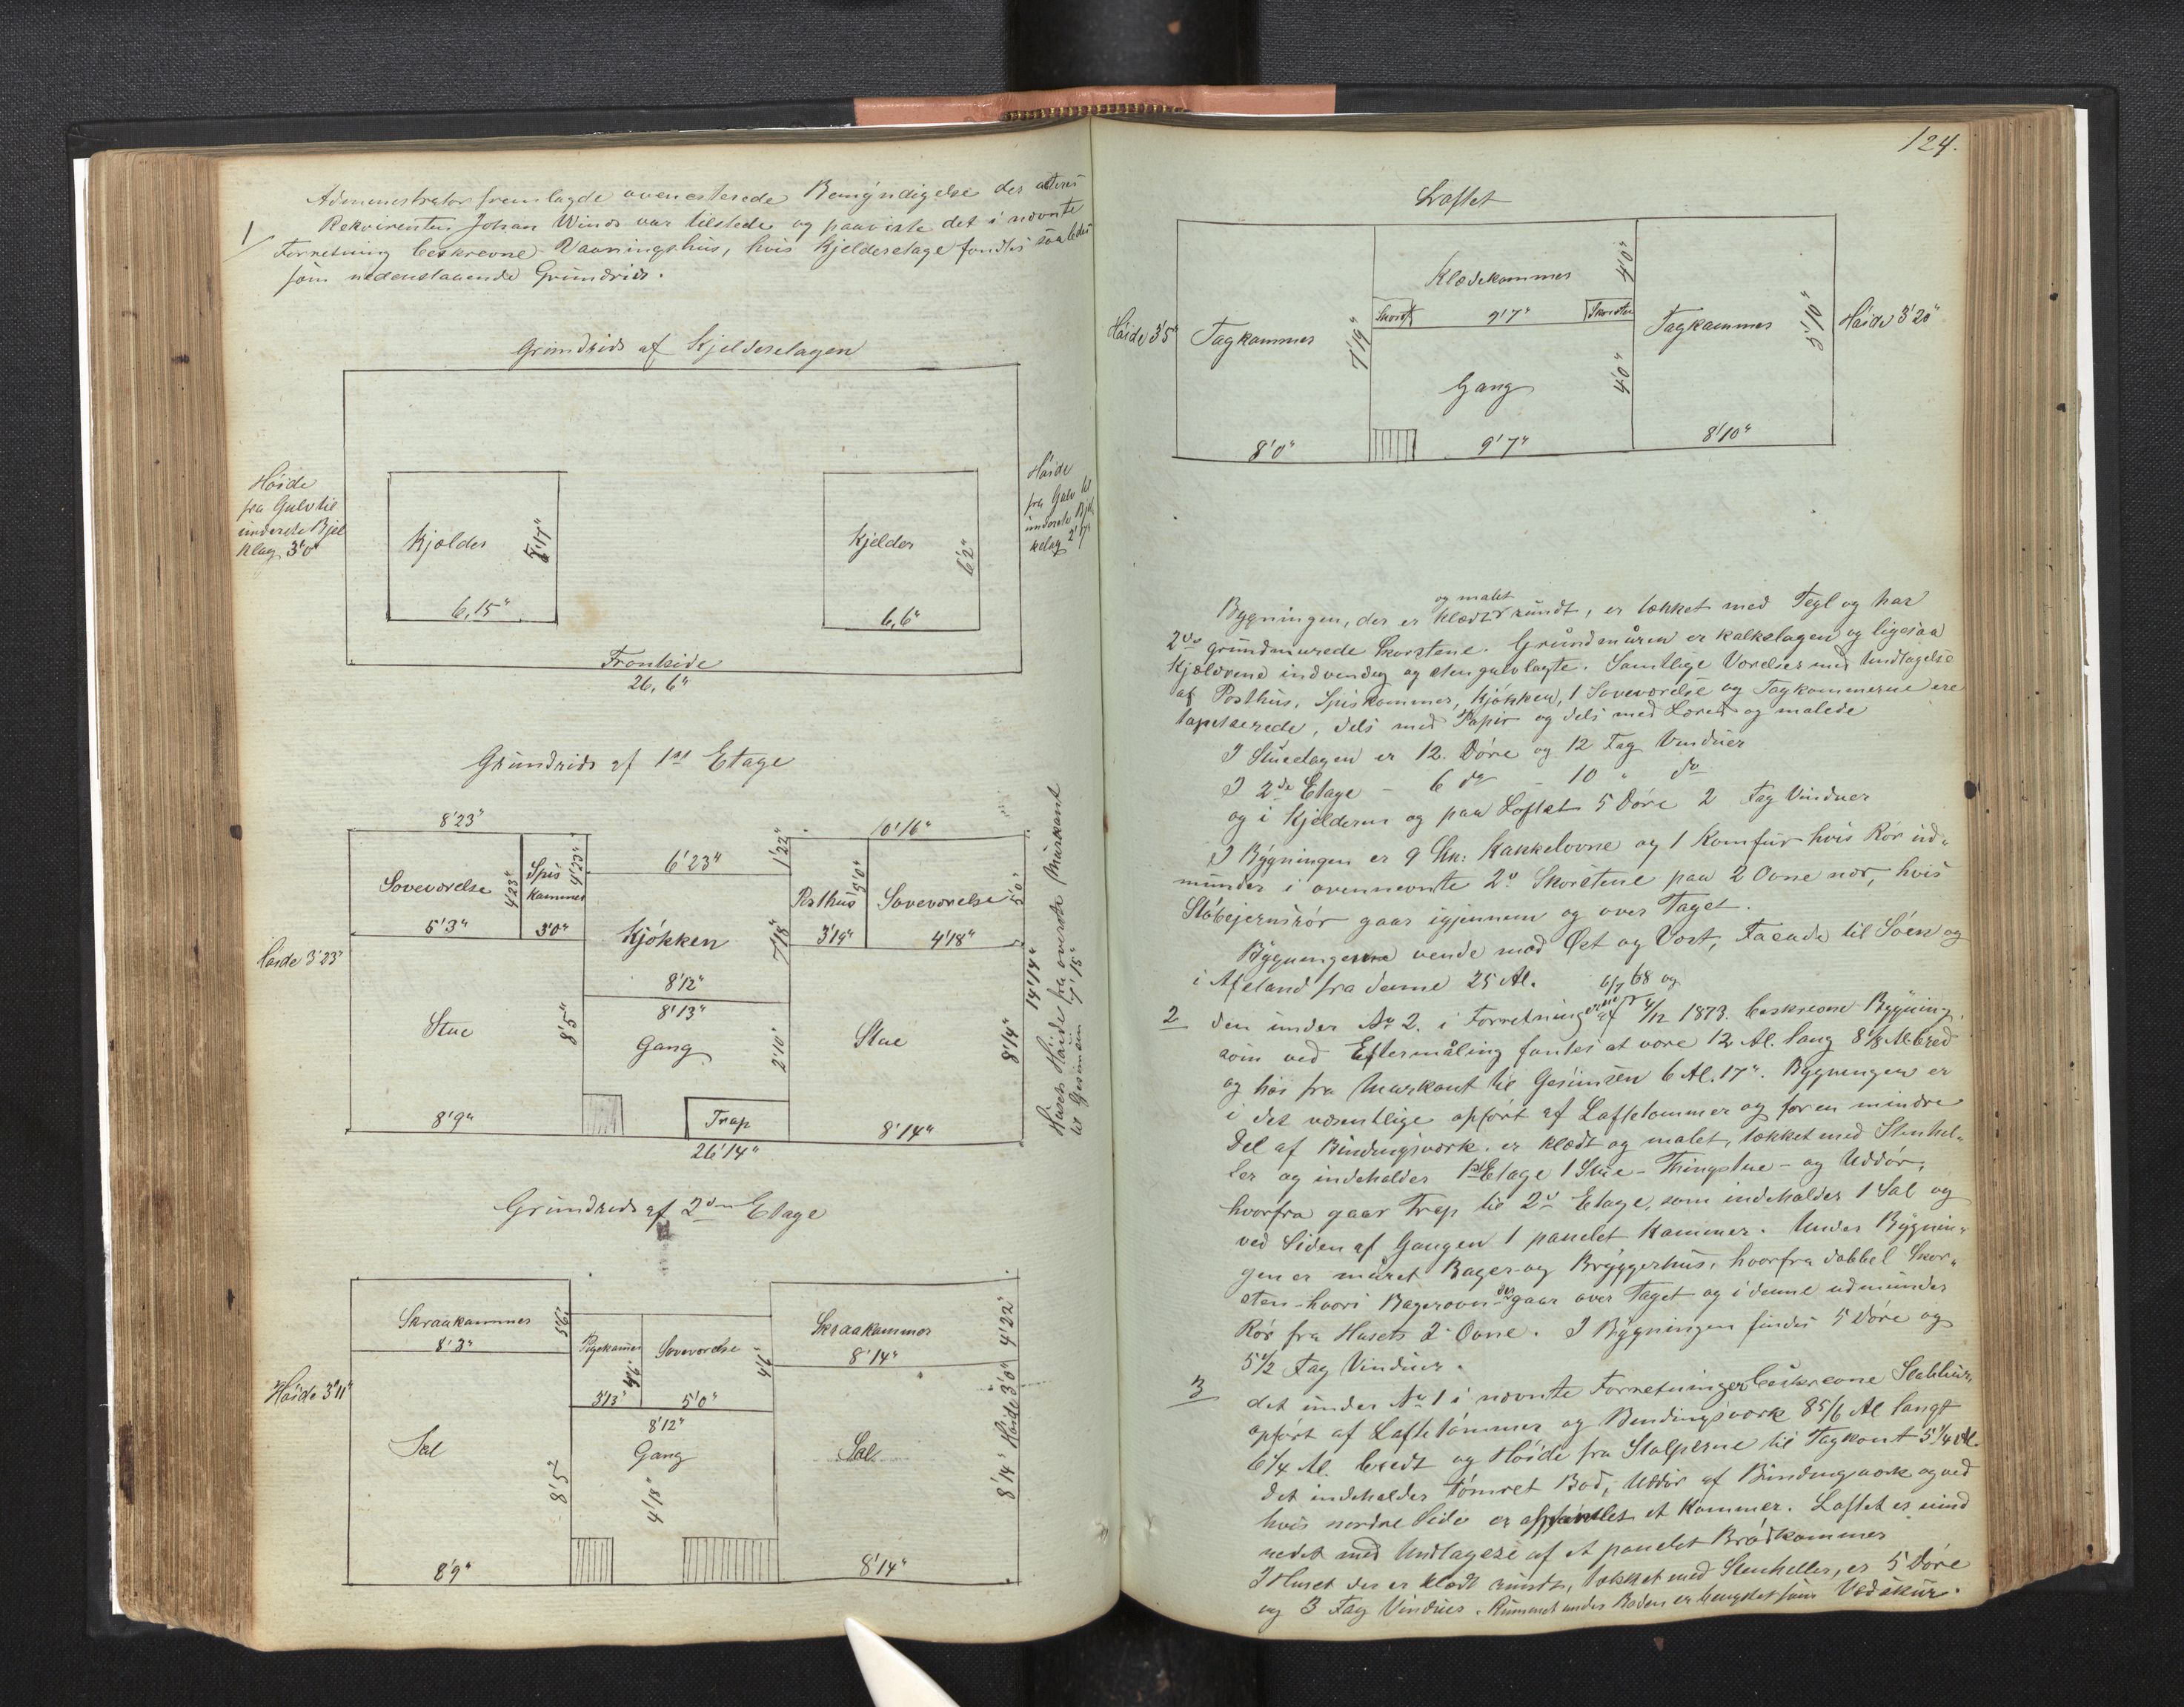 Administrator fremlagde ovenciterede Bemyndigelse der acteres
1/ Rekvirenten Johan Winds var tilstede og paaviste det i nævnte
Forretning beskrevne Vaaningshus, hvis Kjelderetage fandtes saaledes
som nedenstaaende Grundrids.
Grundrids af Kjelderetagen
Høide
fra Gulv til
underste Bjel
klag 3'0"
Kjælder
6'17"
6,15"
Kjelder
6'2"
6,6"
Høide
fra Gulv til
underste Bjel
kelag 2'17"
Frontside
26,6"
Grundrids af 1ste Etage
8'23"
Soveværelse
4'23"
5'3"
Spis
kammer
4'23"
3'0"
6'23"
1'22"
Kjøkken
7'18"
8'12"
10'16"
Posthus
5'0"
3'19"
Soveværelse
5'0"
4'18"
Høide 3'23"
Stue
8'5"
8'9"
8'13"
Gang
2'10"
Trap
Stue
8'14"
8'14"
14'14"
26'14"
Husets Høide fra øverste Murkant
til Gesimsen 7'15"
Grundrids af 2den Etage
Skraakammer
8'3"
5'6"
Pigekamer
4'6"
3'13"
Soveværelse
4'6"
5'0"
Skraakammer
8'14"
4'22"
Høide 3'11"
Sal
8'5"
8'9"
8'12"
Gang
4'18"
Sal
8'14"
8'14"
Høide 3'0"
124.
Loftet
Høide 3'5"
Tagkammer
7'19"
8'0"
Klædekammer
4'0"
Skorst
9'7"
Skorsten
Gang
4'0"
9'7"
Tagkammer
5'10"
8'10"
Høide 3'20"
og malet
Bygningen, der er klædt rundt, er tækket med Tegl og har
2de grundmurede Skorstene. Grundmuren er kalkslagen og ligesaa
Kjælderne indvendig og stengulvlagte. Samtlige Værelser med Undtagelse
af Posthus, Spiskammer, Kjøkken, 1 Soveværelse og Tagkammerne ere
tapetserede, dels med Papir og dels med Lærred og malede
I Stueetagen er 12 Døre og 12 Fag Vinduer
I 2de Etage – 6 do – 10 " do
og i Kjelderen og paa Loftet 5 Døre 2 Fag Vinduer
I Bygningen er 9 Stk: Kakkelovne og 1 Komfur hvis Rør ud-
munder i ovennævnte 2de Skorstene paa 2 Ovne nær, hvis
Støbejernsrør gaar igjennem og over Taget.
Bygningerne vende mod Øst og Vest, Facade til Søen og
i Afstand fra denne 25 Al.
6/7 68 og
2 den under No 2. i Forretningerne af 4/12 1873 beskrevne Bygning,
som ved Eftermåling fantes at være 12 Al. lang 8 1/8 Al bred
og høi fra Murkant til Gesimsen 6 Al. 17". Bygningen er
i det væsentlige opført af Laftetømmer og for en mindre
Del af Bindingsværk, er klædt og malet, tækket med Stenhel-
ler og indeholder 1ste Etage 1 Stue – Thingstue – og Uddør,
hvorfra gaar Trap til 2den Etage, som indeholder 1 Sal og
ved Siden af Gangen 1 panelet Kammer. Under Bygnin-
gen er muret Bager- og Bryggerhus, hvorfra dobbel Skor-
sten – hvori Bagerovn – der gaar over Taget og i denne udmunder
Rør fra Husets 2 Ovne. I Bygningen findes 5 Døre og
5 1/2 Fag Vinduer.
3 det under No 1 i nævnte Forretninger beskrevne Stabbur,
opført af Laftetømmer og Bindingsværk 8 5/6 Al langt
6 1/4 Al. bredt og Høide fra Stolperne til Tagkant 5 1/4 Al.
det indeholder tømret Bod, Uddør af Bindingsværk og ved
hvis nordre Side er afpanelet et Kammer. Loftet er uind
redet med Undtagelse af et panelet Brødkammer
I Huset der er klædt rundt, tækket med Stenheller, er 5 Døre
og 3 Fag Vinduer. Rummet under Boden er benyttet som Vedskur.